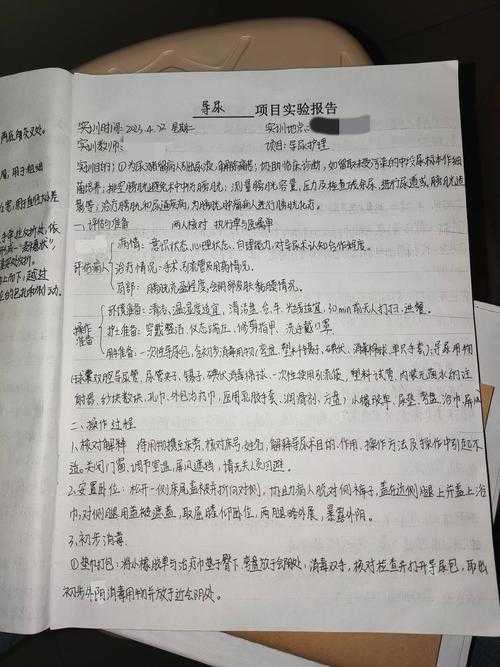 导尿 项目实验报告
实训时间: 2025.4.22 星期二 实训地点:
实训教师: 项目: 导尿护理
实训目的: ①为尿潴留病人引出尿液, 解除痛苦; 协助临床诊断, 如留取未受污染的中段尿标本作细
菌培养; 排空膀胱避免术中野; 测量膀胱容量、压力及检查残余尿, 进行尿道或膀胱造
影等; 治疗膀胱和尿道疾病, 为膀胱肿瘤病人进行膀胱化疗。
一、评估与准备 两人核对 执行单与医嘱单
评估病人
病情: 意识状态、心理状态、自理能力、对导尿术认知合作程度。
治疗情况: 手术、引流管及用药情况。
局部: 膀胱充盈程度、会阴部皮肤黏膜情况。
操作准备
环境准备: 清洁、温湿度适宜, 清洁盘、台、车, 光线适宜, 30min前无人打扫、进餐。
护士准备: 穿戴整洁、仪态端正、修剪指甲、洗手戴口罩
用物准备: 一次性导尿包, 含初步消毒用物(弯盘、塑料镊子、碘伏、消毒棉球、单只手套); 导尿用物
(球囊双腔导尿管、尿管夹子、镊子、碘伏消毒棉球、一次性使用引流袋、塑料试管、内装无菌水的注
射器、纱块数块、孔巾、外包治疗巾、医用乳胶手套、润滑剂、方盘); 小橡胶单、尿垫、弯盘、浴巾、屏风
二、操作过程
1、核对解释 将用物携至床旁, 核对床号、姓名, 解释导尿术目的、作用、操作方法及操作中引起不
适。关闭门窗、调节室温、屏风遮挡, 请无关人员回避。
2、安置卧位: 松开一侧床尾盖被折向对侧, 协助病人脱对侧裤子, 盖在近侧腿上并盖上浴
巾, 对侧腿用盖被遮盖, 取屈膝仰卧位, 两腿略外展, 暴露外阴。
3、初步消毒
①垫巾打包: 将小橡胶单与治疗巾垫于臀下, 弯盘放于会阴处; 消毒双手, 核对检查并打开导尿包, 取出
初步外阴消毒用物并放于近会阴处。